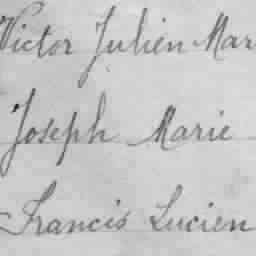 Victor Julien Mar
Joseph Marie
Francis Lucien